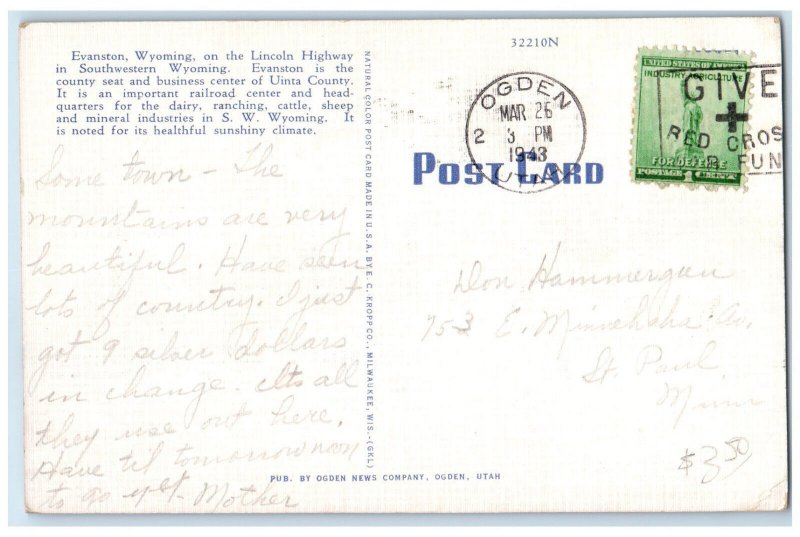 Evanston, Wyoming, on the Lincoln Highway
in Southwestern Wyoming. Evanston is the
county seat and business center of Uinta County.
It is an important railroad center and head-
quarters for the dairy, ranching, cattle, sheep
and mineral industries in S. W. Wyoming. It
is noted for its healthful sunshiny climate.
Some town - The
mountains are very
beautiful. Have seen
lots of country. I just
got 9 silver dollars
in change. Its all
they use out here.
Have til tomorrow noon
to go yet - Mother
NATURAL COLOR POST CARD MADE IN U.S.A. BY E. C. KROPP CO., MILWAUKEE, WIS.-(GKL)
32210N
OGDEN
MAR 26
2 3 PM
1943
UTAH
UNITED STATES OF AMERICA
INDUSTRY AGRICULTURE
FOR DEFENSE
POSTAGE 1 CENT
GIVE
RED CROS
FUN
POST CARD
Don Hammergren
753 E. Minnehaha Av.
St. Paul
Minn
$3.50
PUB. BY OGDEN NEWS COMPANY, OGDEN, UTAH